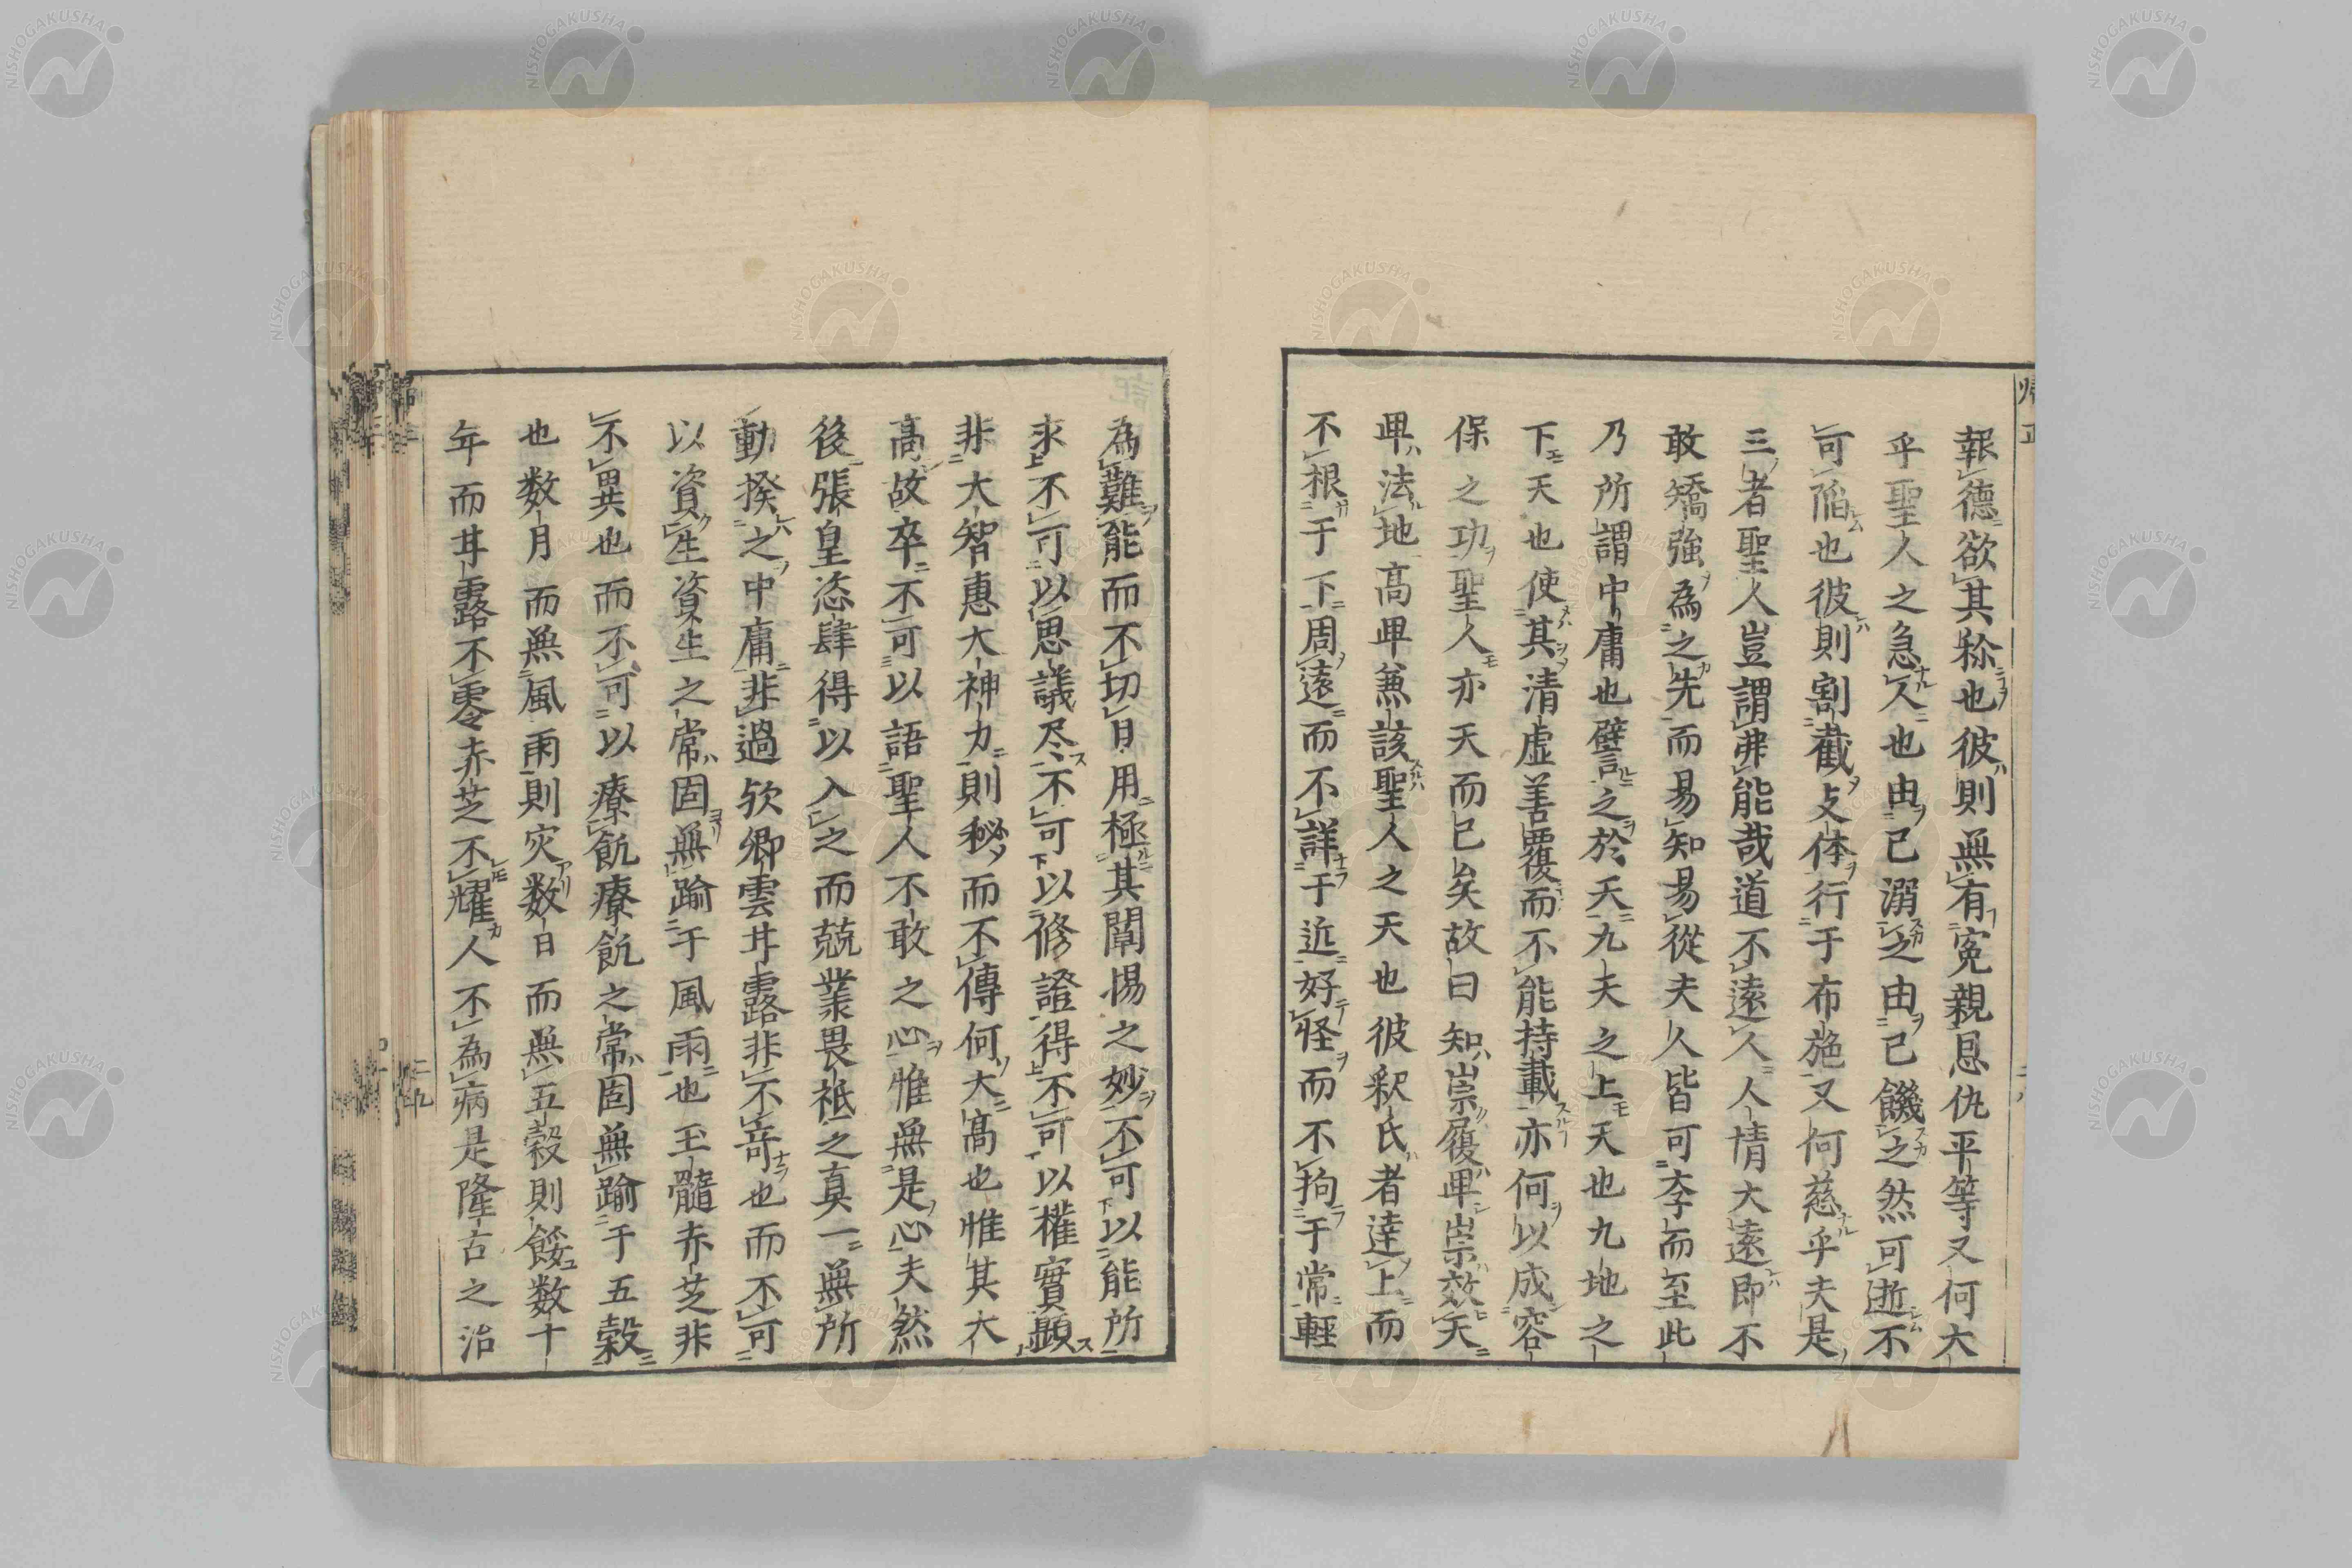 報德欲其稱也彼則無有冤親恩仇平等又何大
乎聖人之急人也由己溺之由己饑之然可逝不
可陷也彼則割截支体行于布施又何慈乎夫是
三者聖人豈謂弗能哉道不遠人人情大遠即不
敢矯強為之先而易知易從夫人皆可李而至此
乃所謂中庸也譬之於天九天之上天也九地之
下天也使其清虛善覆而不能持載亦何以成容
保之功聖人亦天而已矣故曰知崇履卑崇效天
卑法地高卑兼該聖人之天也彼釈氏者達上而
不根于下周遠而不詳于近好怪而不拘于常輕
為難能而不切日用極其闡揚之妙不可以能所
求不可以思議尽不可以修證得不可以權實顯
非大智惠大神力則秘而不傳何大高也惟其大
高故卒不可以語聖人不敢之心惟無是心夫然
後張皇恣肆得以入之而兢業畏祗之真一無所
動揆之中庸非過欤卿雲甘露非不奇也而不可
以資生資生之常固無踰于風雨也玉髓赤芝非
不異也而不可以療飢療飢之常固無踰于五穀
也数月而無風雨則灾数日而無五穀則餒数十
年而甘露不零赤芝不耀人不為病是隆古之治
NISHOGAKUSHA